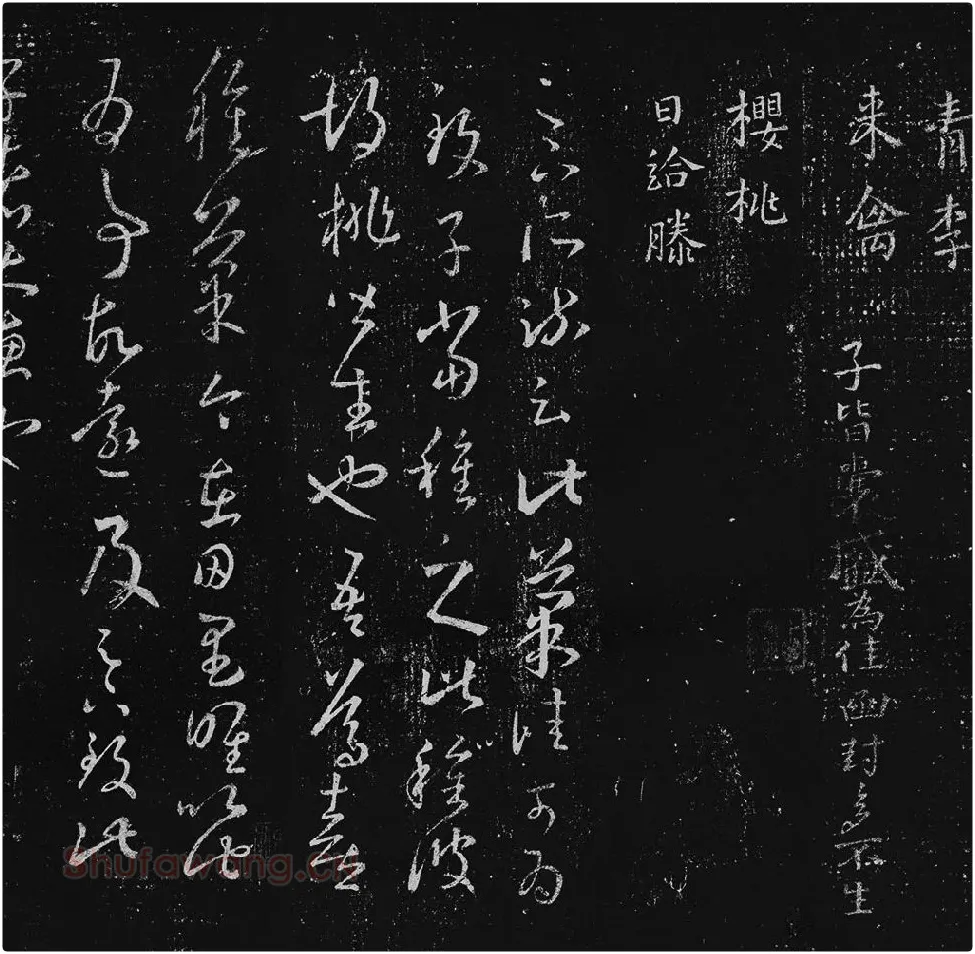 青李
来禽 子皆囊盛為佳函封多不生
櫻桃
日給滕
足下所疏云此菓佳可為
致子當種之此種彼
胡桃皆生也吾篤喜
種菓今在田里唯以此
為事故遠及足下致此
子者大惠也
Shufawang.cn